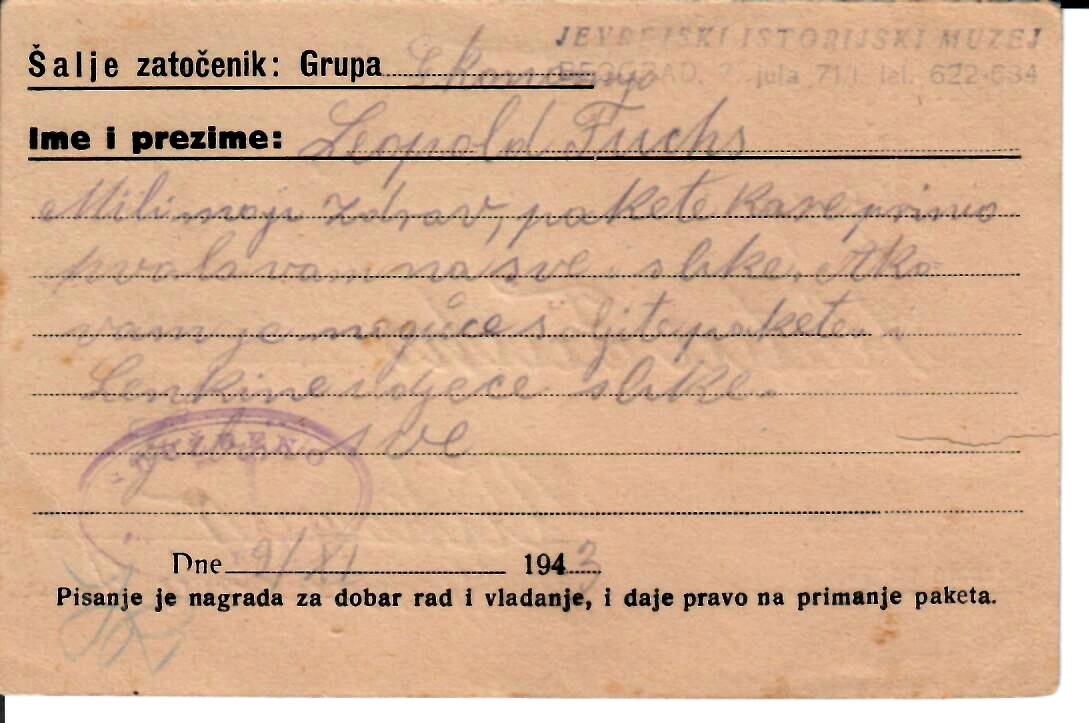 JEVREJSKI ISTORIJSKI MUZEJ
BEOGRAD, 7 jula 71/I tel. 622-634
Šalje zatočenik: Grupa
Ime i prezime: Leopold Fuchs
Mili moji zdrav, pakete primio
hvala vam na sve slike. Ako
vam je moguće šljite pakete
Lenkine i djece slike.
sve
SLUŽBENO
Dne 9/XI 1943
Pisanje je nagrada za dobar rad i vladanje, i daje pravo na primanje paketa.